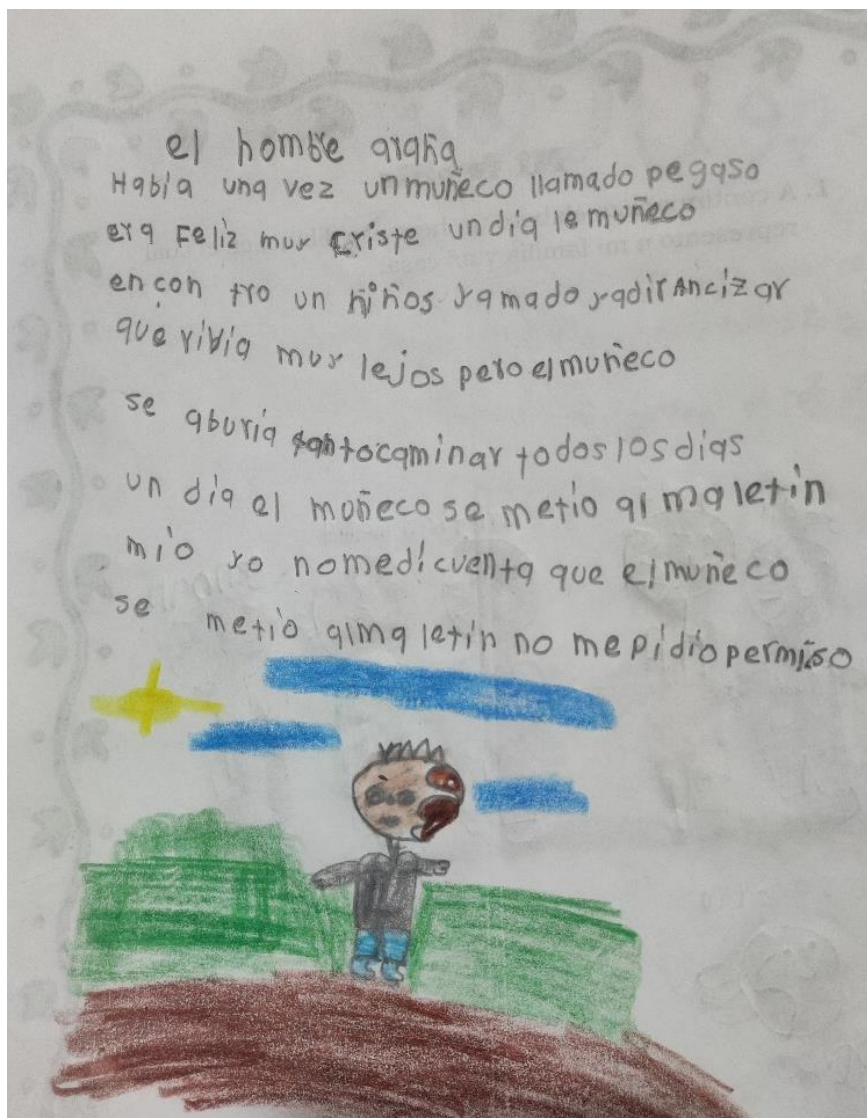 el hombre araña
Había una vez un muñeco llamado pegaso
era Feliz muy triste un dia le muñeco
encon tro un niños yamado yadir Ancizar
que vivia muy lejos pero el muñeco
se aburia tantocaminar todos los dias
un dia el muñeco se metio al maletin
mio yo nomedi cuenta que el muñeco
se metio al maletin no me pidio permiso